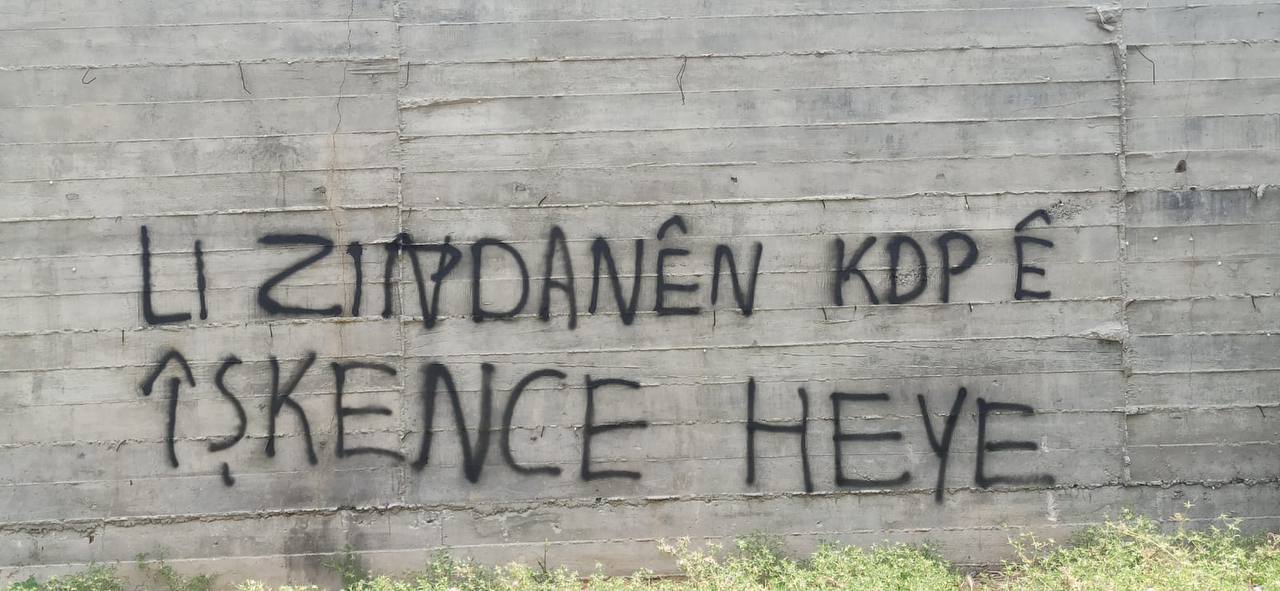 LI ZINDANÊN KDP Ê
ÎŞKENCE HEYE